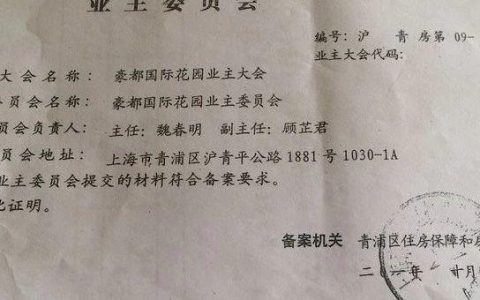 业主委员会
编号：沪 青 房第 09-
业主大会代码：
大会名称：豪都国际花园业主大会
员会名称：豪都国际花园业主委员会
员会负责人：主任：魏春明 副主任：顾芷君
员会地址：上海市青浦区沪青平公路1881号1030-1A
业主委员会提交的材料符合备案要求。
此证明。
备案机关 青浦区住房保障和房
二〇一 年 月